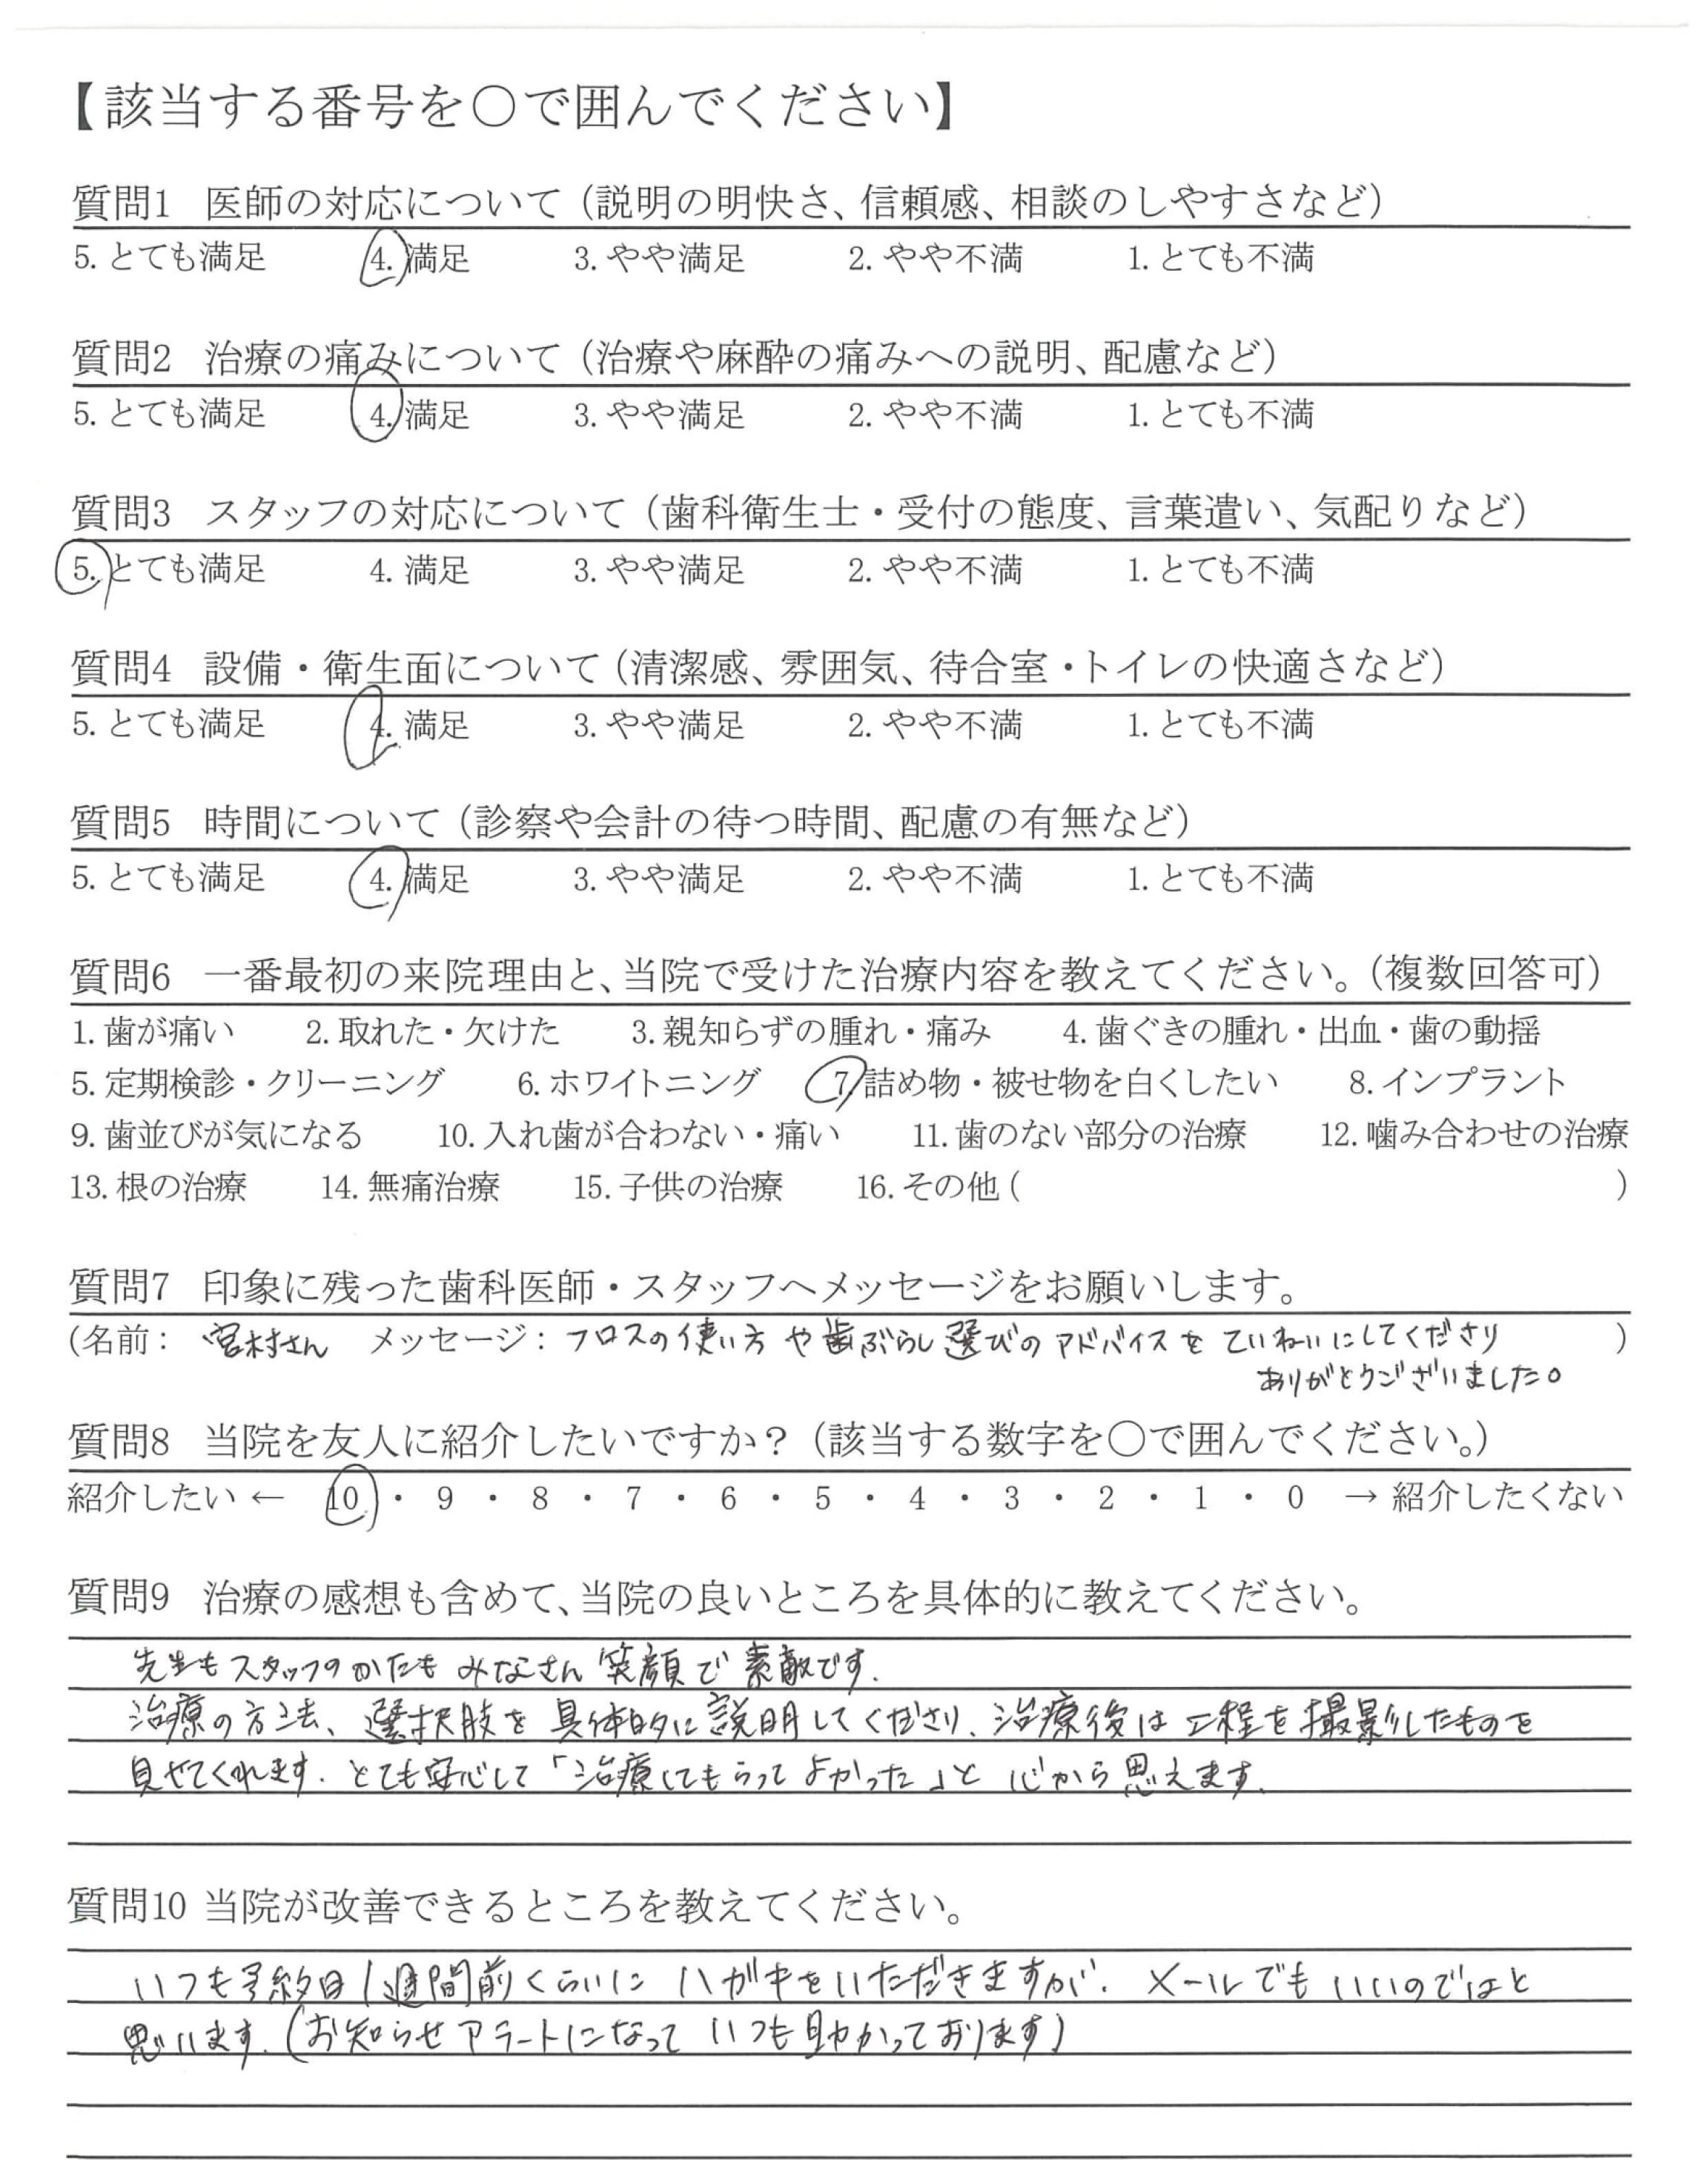 【該当する番号を○で囲んでください】
質問1 医師の対応について（説明の明快さ、信頼感、相談のしやすさなど）
5. とても満足 4. 満足 3. やや満足 2. やや不満 1. とても不満
質問2 治療の痛みについて（治療や麻酔の痛みへの説明、配慮など）
5. とても満足 4. 満足 3. やや満足 2. やや不満 1. とても不満
質問3 スタッフの対応について（歯科衛生士・受付の態度、言葉遣い、気配りなど）
5. とても満足 4. 満足 3. やや満足 2. やや不満 1. とても不満
質問4 設備・衛生面について（清潔感、雰囲気、待合室・トイレの快適さなど）
5. とても満足 4. 満足 3. やや満足 2. やや不満 1. とても不満
質問5 時間について（診察や会計の待つ時間、配慮の有無など）
5. とても満足 4. 満足 3. やや満足 2. やや不満 1. とても不満
質問6 一番最初の来院理由と、当院で受けた治療内容を教えてください。（複数回答可）
1. 歯が痛い 2. 取れた・欠けた 3. 親知らずの腫れ・痛み 4. 歯ぐきの腫れ・出血・歯の動揺
5. 定期検診・クリーニング 6. ホワイトニング 7. 詰め物・被せ物を白くしたい 8. インプラント
9. 歯並びが気になる 10. 入れ歯が合わない・痛い 11. 歯のない部分の治療 12. 噛み合わせの治療
13. 根の治療 14. 無痛治療 15. 子供の治療 16. その他（ ）
質問7 印象に残った歯科医師・スタッフへメッセージをお願いします。
（名前： 宮村さん メッセージ： フロスの使い方や歯ぶらし選びのアドバイスをていねいにしてくださり ）
ありがとうございました。
質問8 当院を友人に紹介したいですか？（該当する数字を○で囲んでください。）
紹介したい ← 10 ・ 9 ・ 8 ・ 7 ・ 6 ・ 5 ・ 4 ・ 3 ・ 2 ・ 1 ・ 0 → 紹介したくない
質問9 治療の感想も含めて、当院の良いところを具体的に教えてください。
先生もスタッフのかたもみなさん笑顔で素敵です.
治療の方法、選択肢を具体的に説明してくださり、治療後は工程を撮影したものを
見せてくれます. とても安心して「治療してもらってよかった」と心から思えます.
質問10 当院が改善できるところを教えてください。
いつも予約日1週間前くらいにハガキをいただきますが. メールでもいいのではと
思います.（お知らせアラートになっていつも助かっております）